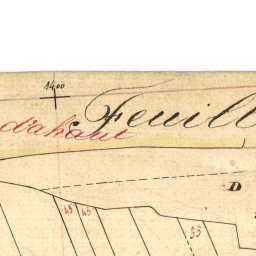 1400
Feuill
d'ahaut
D
45 45
55